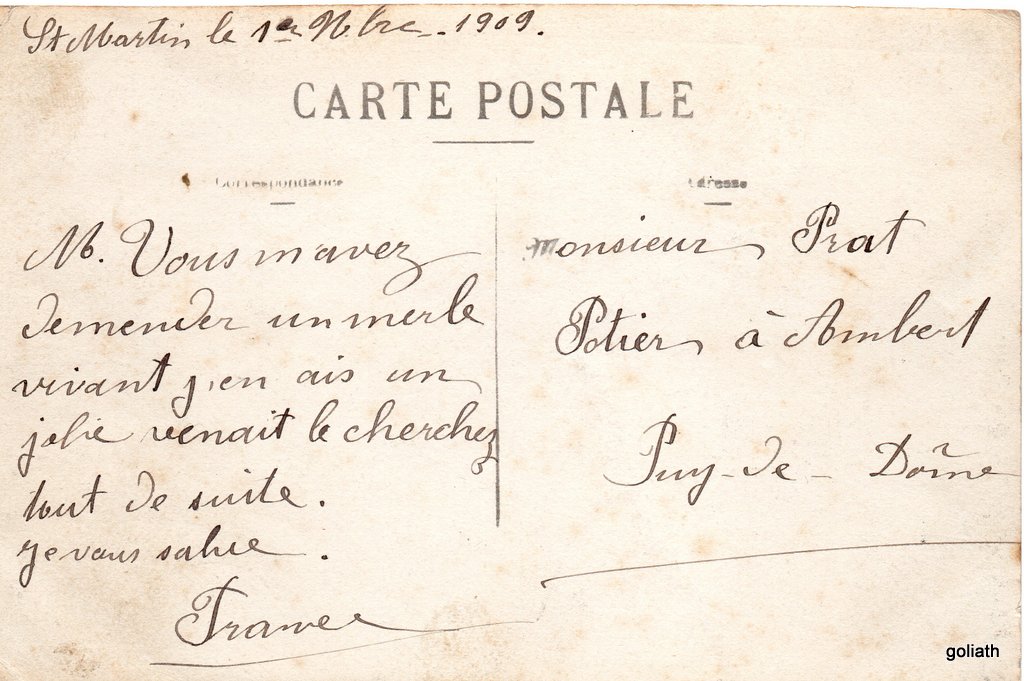 St Martin le 1er 9bre 1909.
CARTE POSTALE
Correspondance
Adresse
M. Vous m'avez
demender un merle
vivant j'en ais un
jolie venait le cherchez
tout de suite.
Je vous salue.
Monsieur Prat
Potier à Ambert
Puy-de-Dôme
goliath